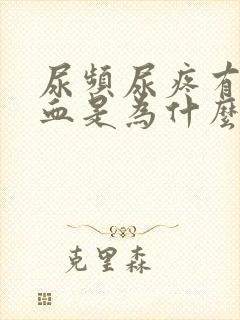 尿頻尿疼有
血是為什麼
克里森